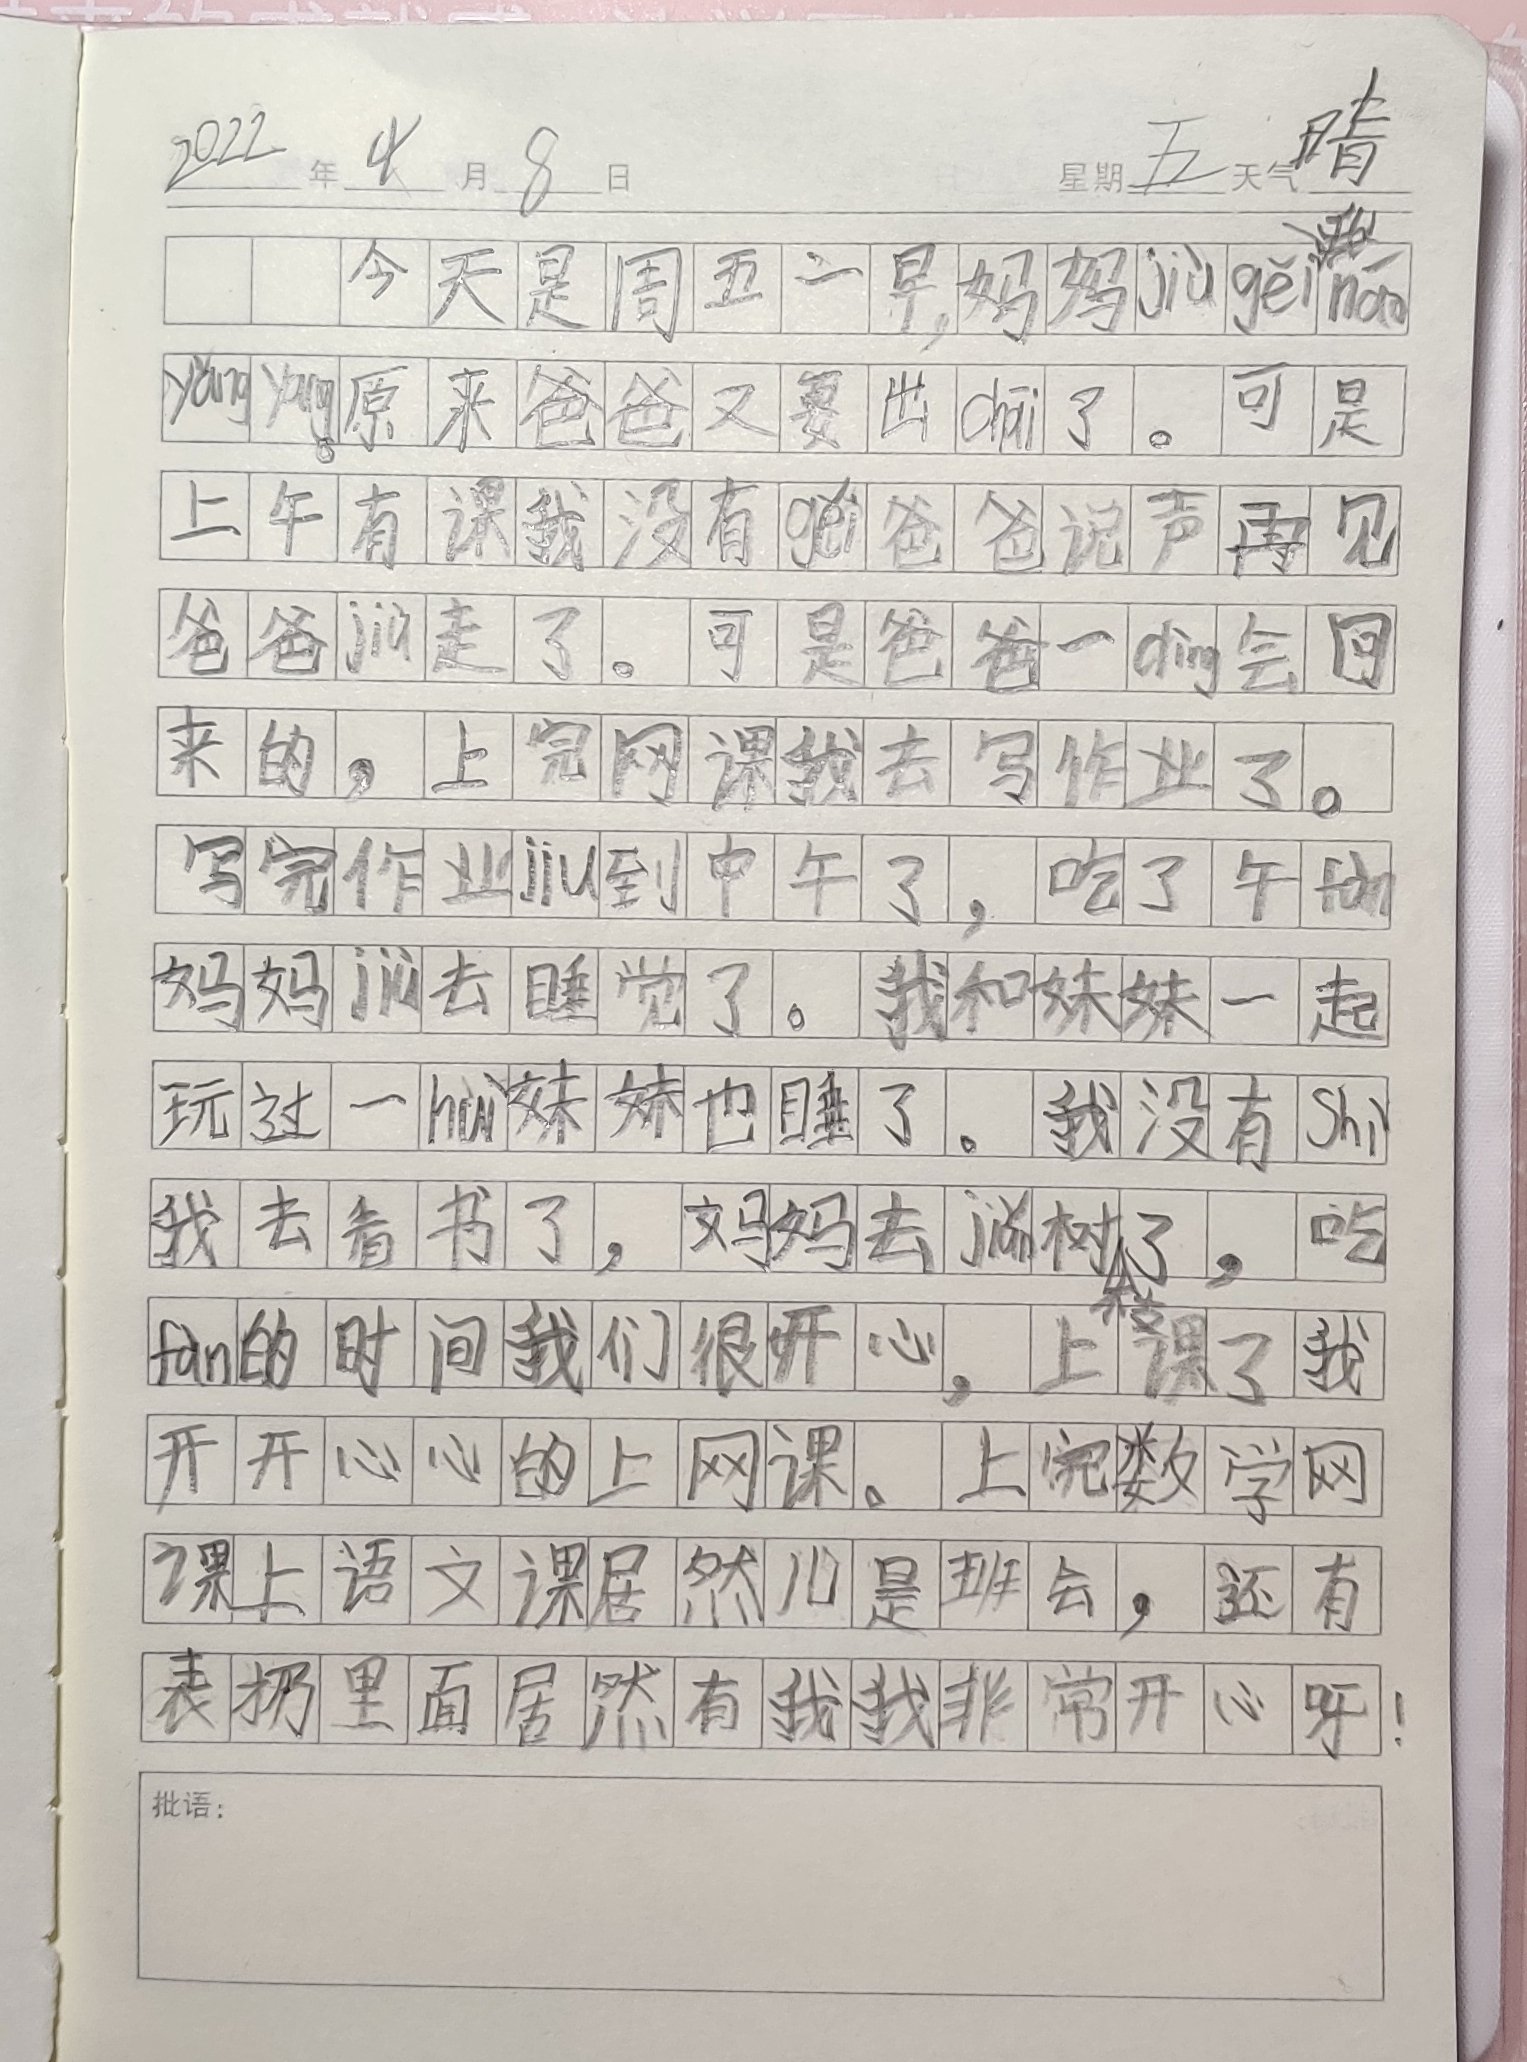 2022年4月8日 星期五天气晴
今天是周五一早,妈妈jiù gěi nào
yāng yang。原来爸爸又要出chāi了。可是
上午有课我没有gěi爸爸说声再见
爸爸jiù走了。可是爸爸一dìng会回
来的,上完网课我去写作业了。
写完作业jiù到中午了,吃了午fàn
妈妈jiù去睡觉了。我和妹妹一起
玩过一huì妹妹也睡了。我没有Shì
我去看书了,妈妈去jiǎn树了,吃
fàn的时间我们很开心,上课了我
开开心心的上网课。上完数学网
课上语文课居然儿是班会,还有
表扔里面居然有我我非常开心呀!
批语: